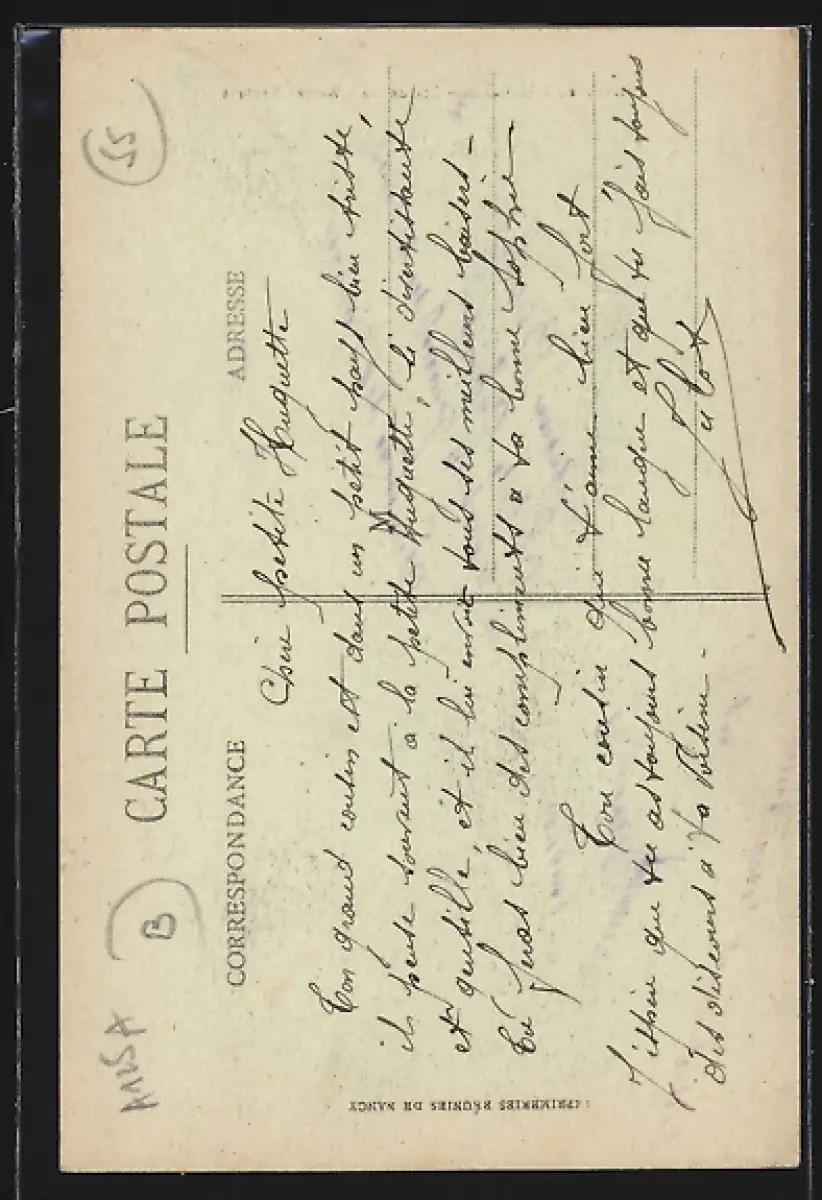 55
B
A125A
CARTE POSTALE
CORRESPONDANCE
ADRESSE
Chère petite Huguette
Ton grand cousin est dans un petit pays bien triste,
il pense souvent à la petite Huguette, si divertissante
et gentille, et il lui envoie tous ses meilleurs baisers -
Tu feras bien des compliments à ta bonne Sophie
Ton cousin qui t'aime bien fort
J'espère que tu as toujours bonne langue et que tu fais toujours
des discours à ta
Julot
IMPRIMERIES RÉUNIES DE NANCY